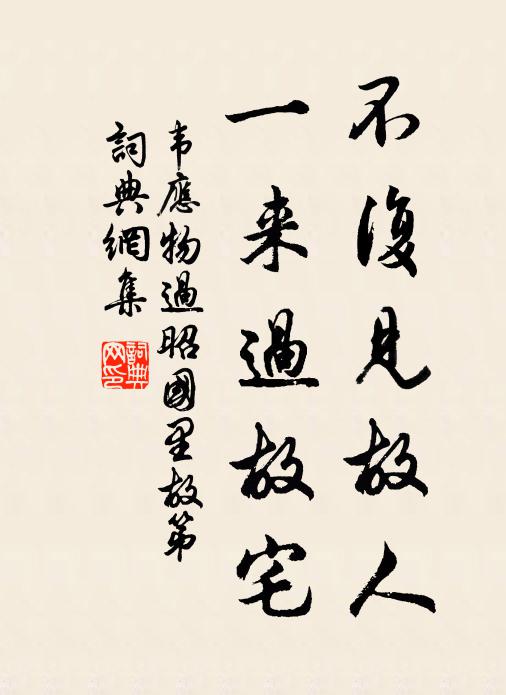 不復見故人
一来過故宅
韦應物過昭國里故第
詞典網集
詞典網印